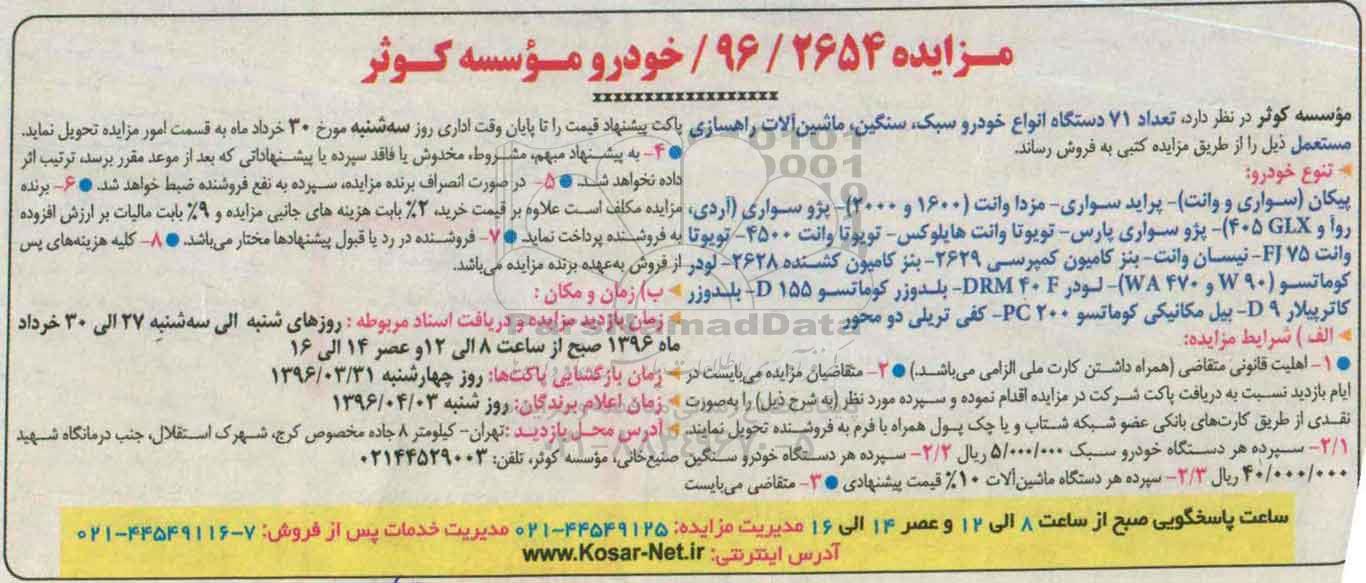 مزایده ۲۶۵۴ / ۹۶ / خودرو مؤسسه کوثر
مؤسسه کوثر در نظر دارد، تعداد ۷۱ دستگاه انواع خودرو سبک، سنگین، ماشین‌آلات راهسازی
مستعمل ذیل را از طریق مزایده کتبی به فروش رساند.
تنوع خودرو:
پیکان (سواری و وانت)- پراید سواری- مزدا وانت (۱۶۰۰ و ۲۰۰۰)- پژو سواری (آردی،
روآ و GLX ۴۰۵)- پژو سواری پارس- تویوتا وانت هایلوکس- تویوتا وانت ۴۵۰۰- تویوتا
وانت FJ ۷۵- نیسان وانت- بنز کامیون کمپرسی ۲۶۲۹- بنز کامیون کشنده ۲۶۲۸- لودر
کوماتسو (W ۹۰ و WA ۴۷۰)- لودر DRM ۴۰ F- بلدوزر کوماتسو D ۱۵۵- بلدوزر
کاترپیلار D ۹- بیل مکانیکی کوماتسو PC ۲۰۰- کفی تریلی دو محور
الف ) شرایط مزایده:
۱- اهلیت قانونی متقاضی (همراه داشتن کارت ملی الزامی می‌باشد.) ۲- متقاضیان مزایده می‌بایست در
ایام بازدید نسبت به دریافت پاکت شرکت در مزایده اقدام نموده و سپرده مورد نظر (به شرح ذیل) را به‌صورت
نقدی از طریق کارت‌های بانکی عضو شبکه شتاب و یا چک پول همراه با فرم به فروشنده تحویل نمایند.
۲/۱- سپرده هر دستگاه خودرو سبک ۵/۰۰۰/۰۰۰ ریال ۲/۲- سپرده هر دستگاه خودرو سنگین
۴۰/۰۰۰/۰۰۰ ریال ۲/۳- سپرده هر دستگاه ماشین‌آلات ۱۰٪ قیمت پیشنهادی ۳- متقاضی می‌بایست
پاکت پیشنهاد قیمت را تا پایان وقت اداری روز سه‌شنبه مورخ ۳۰ خرداد ماه به قسمت امور مزایده تحویل نماید.
۴- به پیشنهاد مبهم، مشروط، مخدوش یا فاقد سپرده یا پیشنهاداتی که بعد از موعد مقرر برسد، ترتیب اثر
داده نخواهد شد. ۵- در صورت انصراف برنده مزایده، سپرده به نفع فروشنده ضبط خواهد شد. ۶- برنده
مزایده مکلف است علاوه بر قیمت خرید، ۲٪ بابت هزینه های جانبی مزایده و ۹٪ بابت مالیات بر ارزش افزوده
به فروشنده پرداخت نماید. ۷- فروشنده در رد یا قبول پیشنهادها مختار می‌باشد. ۸- کلیه هزینه‌های پس
از فروش به‌عهده برنده مزایده می‌باشد.
ب) زمان و مکان :
زمان بازدید مزایده و دریافت اسناد مربوطه : روزهای شنبه الی سه‌شنبه ۲۷ الی ۳۰ خرداد
ماه ۱۳۹۶ صبح از ساعت ۸ الی ۱۲و عصر ۱۴ الی ۱۶
زمان بازگشایی پاکت‌ها: روز چهارشنبه ۱۳۹۶/۰۳/۳۱
زمان اعلام برندگان: روز شنبه ۱۳۹۶/۰۴/۰۳
آدرس محل بازدید :تهران- کیلومتر ۸ جاده مخصوص کرج، شهرک استقلال، جنب درمانگاه شهید
صنیع‌خانی، مؤسسه کوثر، تلفن: ۰۲۱۴۴۵۲۹۰۰۳
ساعت پاسخگویی صبح از ساعت ۸ الی ۱۲ و عصر ۱۴ الی ۱۶ مدیریت مزایده: ۴۴۵۴۹۱۲۵-۰۲۱ مدیریت خدمات پس از فروش: ۷-۴۴۵۴۹۱۱۶-۰۲۱
آدرس اینترنتی: www.Kosar-Net.ir
ParsNamadData